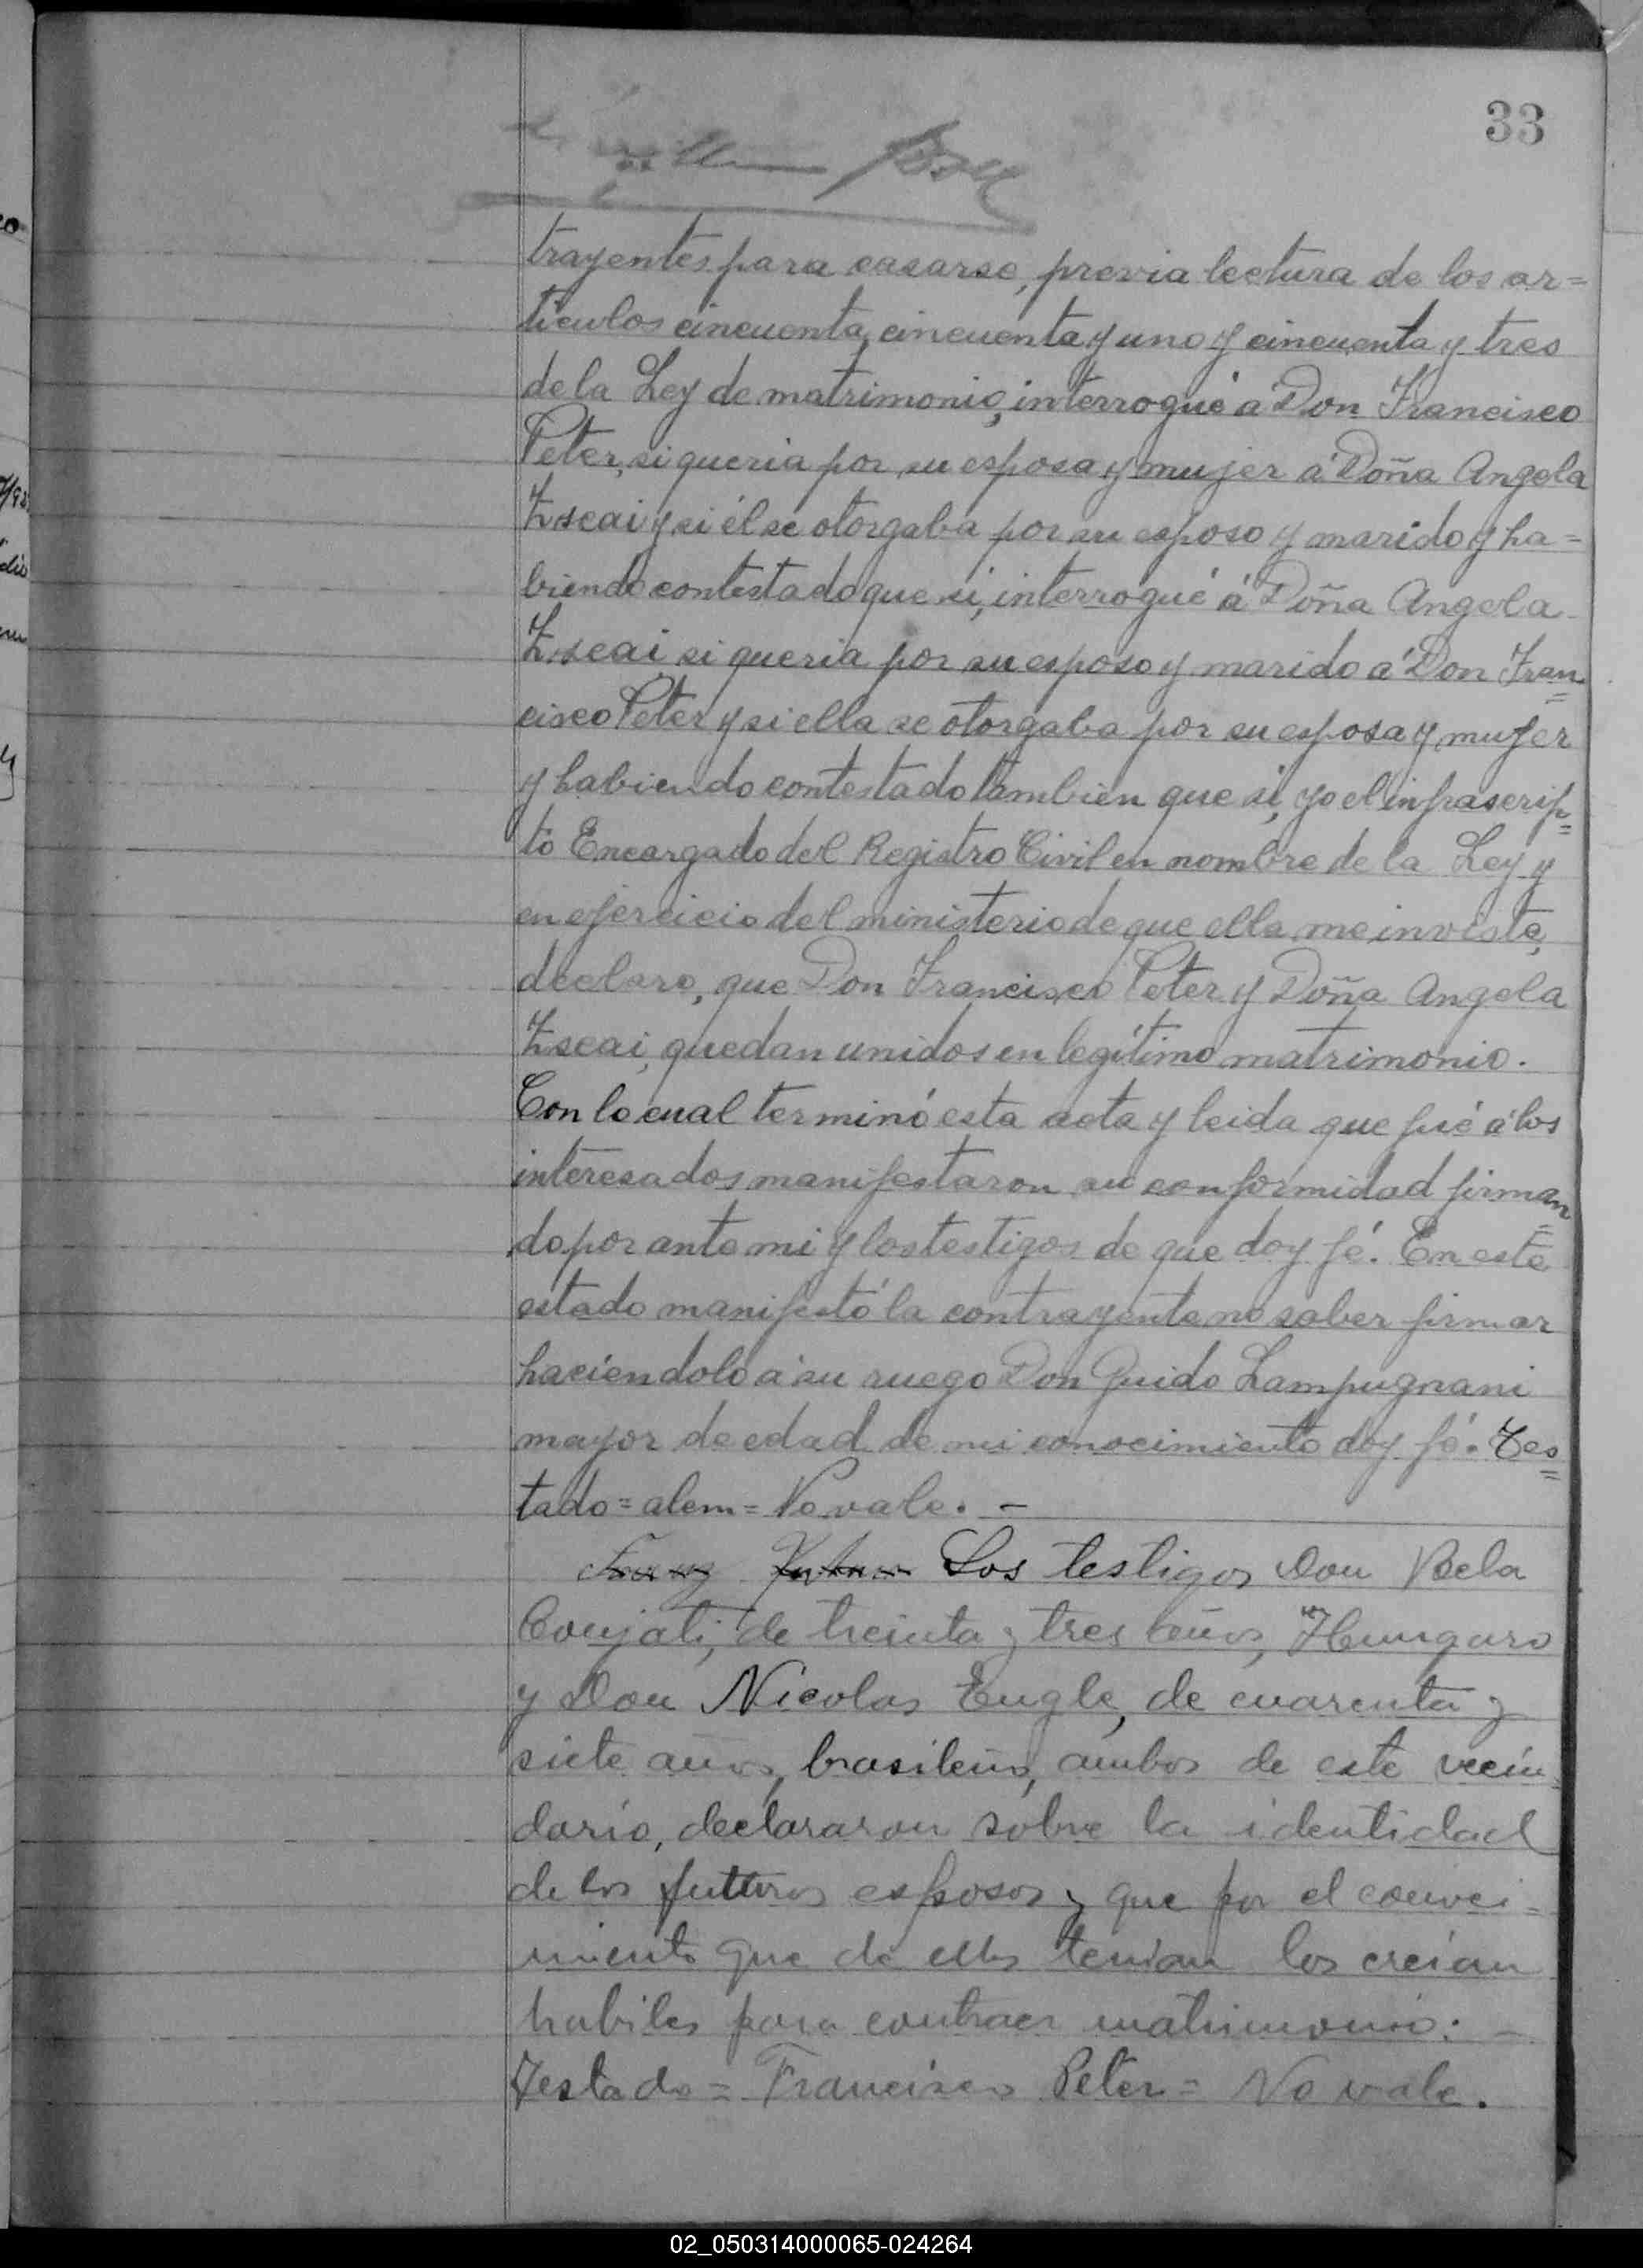 33
trayentes para casarse, previa lectura de los ar=
tículos cincuenta, cincuenta y uno y cincuenta y tres
de la Ley de matrimonio, interrogué á Don Francisco
Peter, si queria por su esposa y mujer á Doña Angela
Zscai y si él se otorgaba por su esposo y marido y ha=
biendo contestado que si, interrogué á Doña Angela
Zscai si queria por su esposo y marido a Don Fran=
cisco Peter y si ella se otorgaba por su esposa y mujer
y habiendo contestado tambien que si, yo el infrascrip=
to Encargado del Registro Civil en nombre de la Ley y
en ejercicio del ministerio de que ella me inviste,
declaro, que Don Francisco Peter y Doña Angela
Zscai, quedan unidos en legítimo matrimonio.
Con lo cual terminó esta acta y leida que fué á los
interesados manifestaron su conformidad firman=
do por ante mi y los testigos de que doy fé. En este
estado manifestó la contrayente no saber firmar
haciendolo á su ruego Don Guido Lampugnani
mayor de edad de mi conocimiento doy fé. Tes=
tado = alem = No vale. -
Los testigos Don Bela
de treinta y tres años, Hungaro
y Don Nicolas Engle, de cuarenta y
siete años, brasileño, ambos de este vecin=
dario, declararon sobre la identidad
de los futuros esposos y que por el conoci=
miento que de ellos tenian los creian
habiles para contraer matrimonio: -
Testado = Francisco Peter = No vale.
02_050314000065-024264